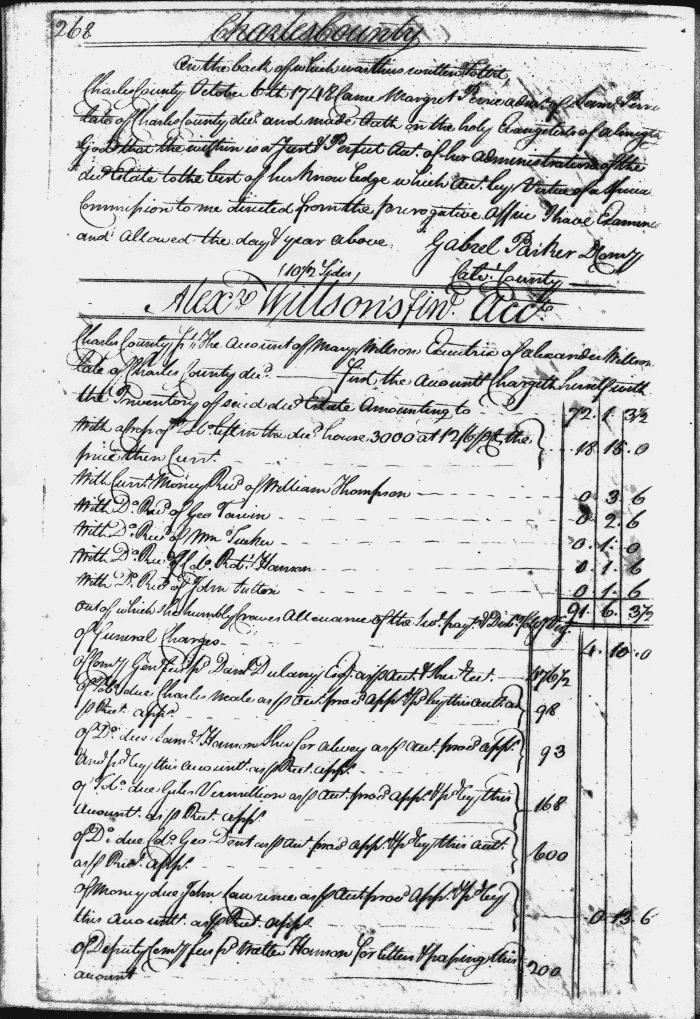 268 Charles County
On the back of which was thus written Tobit
Charles County October 6th 1748 Came Margret Perrie admx of Saml Perrie
Late of Charles County decd and made Oath on the holy Evangelists of almighty
God that the within is a Just & Perfect Acct. of her administration of the
decd Estate to the best of her Knowledge which Acct. by Virtue of a Special
Commission to me directed from the prerogative Office I have Examined
and allowed the day & year above Gabriel Parker D Comry
(10½ Sides) Calvt County
Alexr Willson's finl. Acct
Charles County ss. The Account of Mary Willson Executrix of alexander Willson
late of Charles County decd. First the Account Chargeth herself with
the Inventory of said decd Estate Amounting to 72. 1. 3½
With a crop of Tobo left in the decd house 3000 at 12/6 pct the 18. 15. 0
price then Curt
With Curt. Money Recd of William Thompson 0. 3. 6
With Do Recd of Geo 0. 2. 6
With Do Recd of Wm Tucker 0. 1. 0
With Do Recd of Colo. Robt. Hanson 0. 1. 6
With Do Recd of John 0. 1. 6
91. 6. 3½
out of which she humbly Craves Allowance of the payts & Disb
of Funeral Charges 4. 10. 0
of Comry Genl Fees pd Danl Dulany Esqr. as p Acct. & Rect. 176½
of Tobo. due Charles Neale as p Acct. provd appr & pd by this acct. as 98
p Rect. appr.
of Do. due Saml. Hanson Sher for as p Act. provd appr. 93
and pd by this Account as p Rect. appr.
of Tobo. due Giles Vermillion as p Act. provd appr. & pd by this 168
Amount as p Rect. appr.
of Do due Colo. Geo Dent as p Act provd appr. & pd by this acct 600
as p Rect. appr.
of Money due John Lawrence as p Act provd Appr. & pd by
this Account. as p Rect. appr. 0. 13. 6
of Deputy Comry fees pd Walter Hanson for letters & passing this 200
account